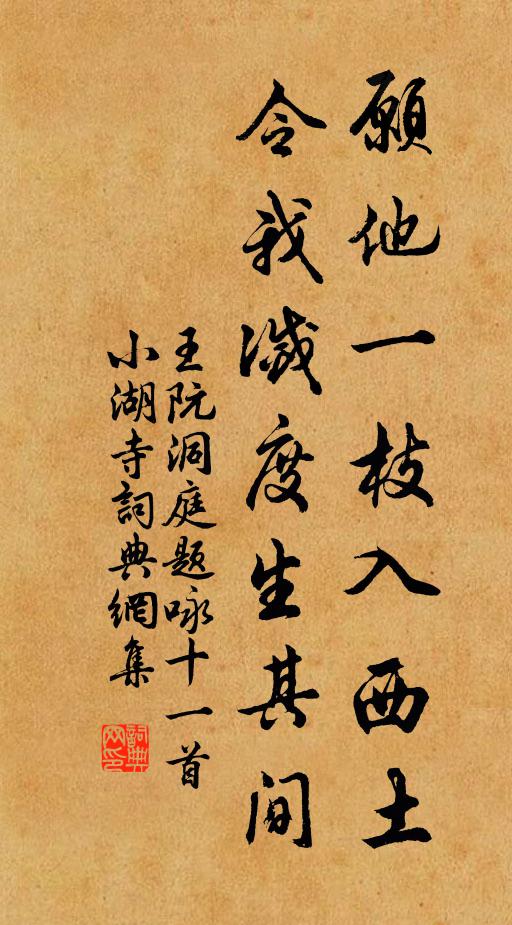 願他一枝入西土
令我滅度生其间
王阮洞庭题咏十一首
小湖寺詞典網集
詞典网印